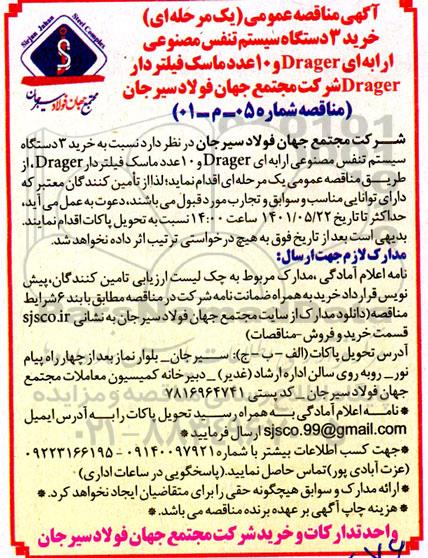 Sirjan Jahan
Steel Complex
مجتمع جهان فولاد سیرجان
آگهی مناقصه عمومی (یک مرحله ای)
خرید ۳ دستگاه سیستم تنفس مصنوعی
ارابه ای Drager و ۱۰ عدد ماسک فیلتر دار
Drager شرکت مجتمع جهان فولاد سیرجان
(مناقصه شماره ۰۵ــ م ــ ۰۱)
شــرکت مجتمع جهان فولاد سیرجان در نظر دارد نسبت به خرید ۳ دستگاه
سیستم تنفس مصنوعی ارابه ای Drager و ۱۰ عدد ماسک فیلتر دار Drager، از
طریــق مناقصه عمومی یک مرحله ای اقدام نماید؛ لذا از تأمین کنندگان معتبر که
دارای توانایی مناسب و سوابق و تجارب مورد قبول می باشند، دعوت به عمل می آید،
حداکثر تا تاریخ ۱۴۰۱/۰۵/۲۲ ساعت ۱۴:۰۰ نسبت به تحویل پاکات اقدام نمایند.
بدیهی است بعد از تاریخ فوق به هیچ درخواستی ترتیب اثر داده نخواهد شد.
مدارک لازم جهت ارسال:
نامه اعلام آمادگی ،مدارک مربوط به چک لیست ارزیابی تامین کنندگان، پیش
نویس قرارداد خرید به همراه ضمانت نامه شرکت در مناقصه مطابق با بند ۶ شرایط
مناقصه (دانلود مدارک از سایت مجتمع جهان فولاد سیرجان به نشانی sjsco.ir
قسمت خرید و فروش-مناقصات)
آدرس تحویل پاکات (الف - ب - ج): ســیرجان_ بلوار نماز بعد از چهار راه پیام
نور_ روبه روی سالن اداره ارشاد (غدیر) _ دبیرخانه کمیسیون معاملات مجتمع
جهان فولاد سیرجان _ کد پستی ۷۸۱۶۹۶۴۷۴۱
* نامــه اعلام آمادگــی بــه همراه رســید تحویل پاکات را بــه آدرس ایمیل
sjsco.99@gmail.com ارسال فرمایید *
* جهت کسب اطلاعات بیشتر با شماره ۰۹۱۴۰۰۹۷۹۲۱ - ۰۹۲۲۳۱۶۶۱۹۵
(عزت آبادی پور) تماس حاصل نمایید. (پاسخگویی در ساعات اداری)
* ارائه مدارک و سوابق هیچگونه حقی را برای متقاضیان ایجاد نخواهد کرد. *
* هزینه چاپ آگهی بر عهده برنده مناقصه می باشد. *
واحد تدارکات و خرید شرکت مجتمع جهان فولاد سیرجان